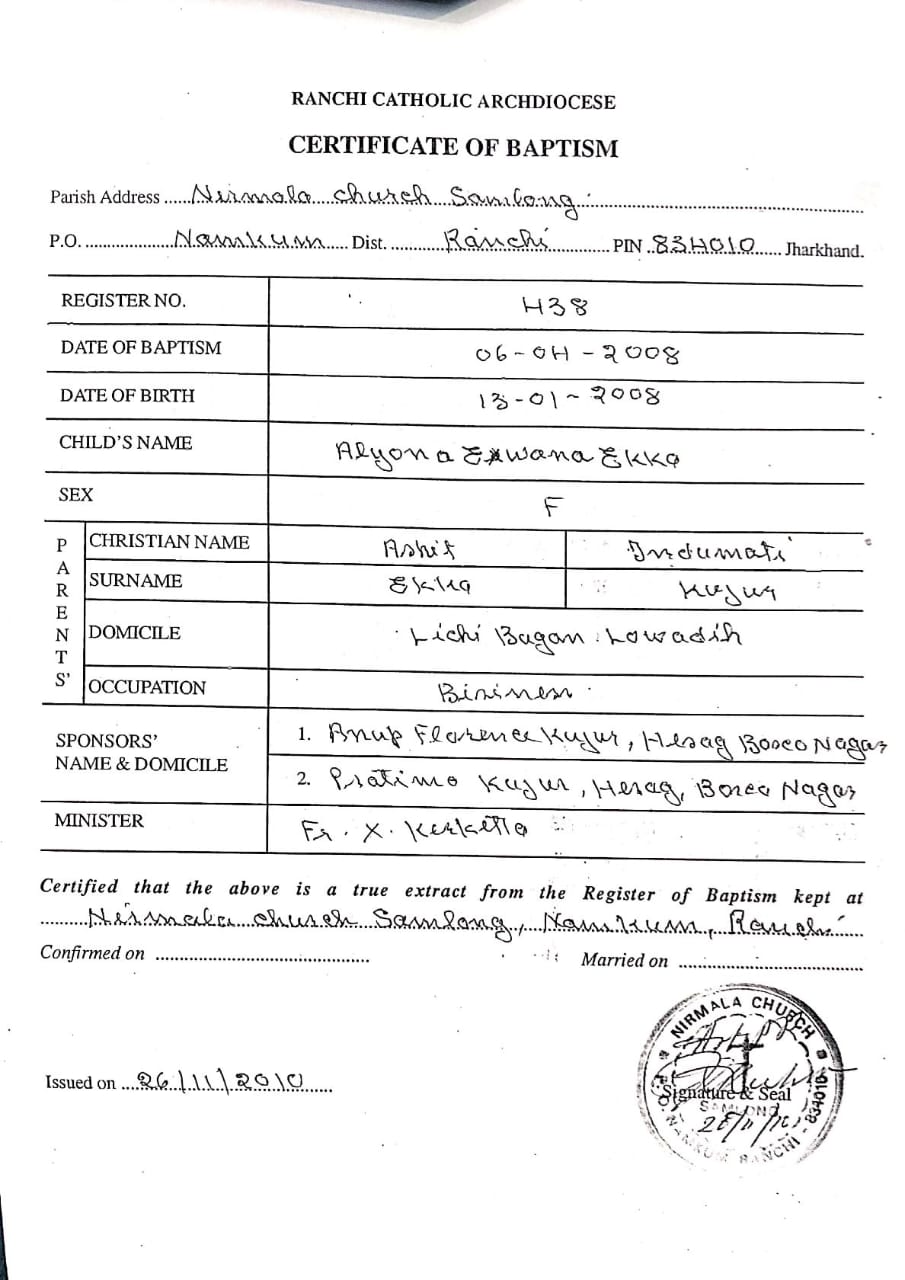 RANCHI CATHOLIC ARCHDIOCESE
CERTIFICATE OF BAPTISM
Parish Address ......Nirmala church Samlong
P.O. ...Namkum... Dist. ...Ranchi... PIN ..834010... Jharkhand.
REGISTER NO. 438
DATE OF BAPTISM 06-04-2008
DATE OF BIRTH 13-01-2008
CHILD'S NAME Alyona Ekka
SEX F
PARENTS'
CHRISTIAN NAME Ashit Indumati
SURNAME Ekka Kujur
DOMICILE Lichi Bagan Lowadih
OCCUPATION Bisiness
SPONSORS' NAME & DOMICILE
1. Anup Florence Kujur, Hesag Bosco Nagar
2. Pratima Kujur, Hesag, Bosco Nagar
MINISTER Fr. X. Kerketta
Certified that the above is a true extract from the Register of Baptism kept at
Nirmala church Samlong, Namkum, Ranchi
Confirmed on ........ Married on ........
Issued on ...26/11/2010...
NIRMALA CHURCH
Signature & Seal
SAMLONG
P.O. NAMKUM RANCHI - 834010